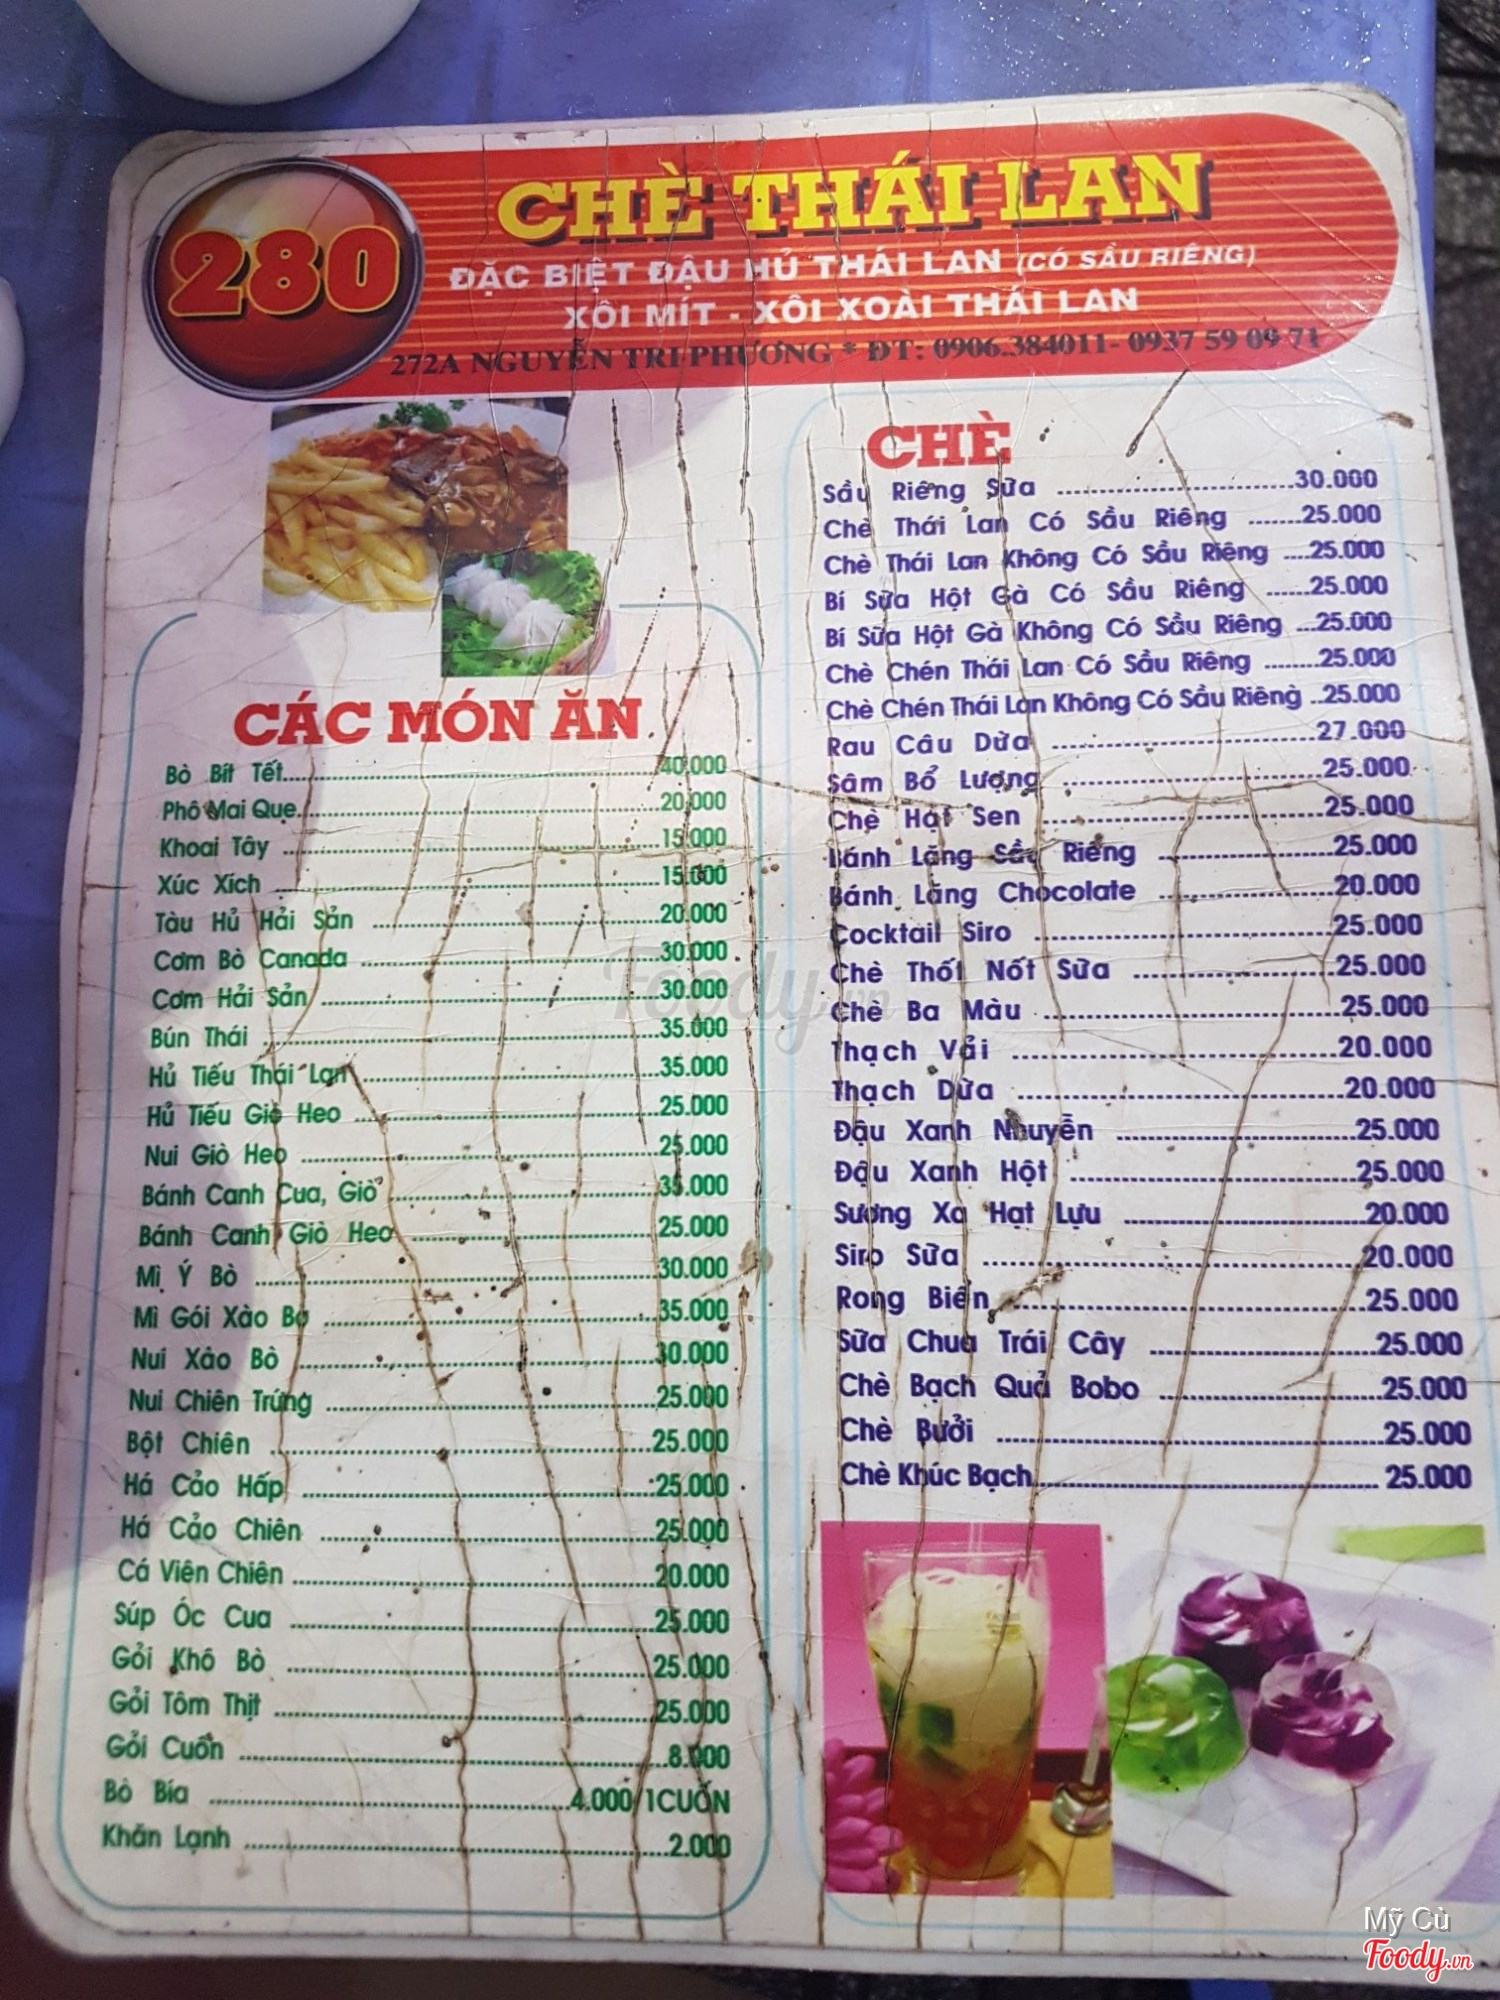 280
CHÈ THÁI LAN
ĐẶC BIỆT ĐẬU HỦ THÁI LAN (CÓ SẦU RIÊNG)
XÔI MÍT - XÔI XOÀI THÁI LAN
272A NGUYỄN TRI PHƯƠNG * ĐT: 0906.384011- 0937 59 09 71
CÁC MÓN ĂN
Bò Bít Tết 40.000
Phô Mai Que 20.000
Khoai Tây 15.000
Xúc Xích 15.000
Tàu Hủ Hải Sản 20.000
Cơm Bò Canada 30.000
Cơm Hải Sản 30.000
Bún Thái 35.000
Hủ Tiếu Thái Lan 35.000
Hủ Tiếu Giò Heo 25.000
Nui Giò Heo 25.000
Bánh Canh Cua, Giò 35.000
Bánh Canh Giò Heo 25.000
Mì Ý Bò 30.000
Mì Gói Xào Bò 35.000
Nui Xào Bò 30.000
Nui Chiên Trứng 25.000
Bột Chiên 25.000
Há Cảo Hấp 25.000
Há Cảo Chiên 25.000
Cá Viên Chiên 20.000
Súp Óc Cua 25.000
Gỏi Khô Bò 25.000
Gỏi Tôm Thịt 25.000
Gỏi Cuốn 8.000
Bò Bía 4.000/1CUỐN
Khăn Lạnh 2.000
CHÈ
Sầu Riêng Sữa 30.000
Chè Thái Lan Có Sầu Riêng 25.000
Chè Thái Lan Không Có Sầu Riêng 25.000
Bí Sữa Hột Gà Có Sầu Riêng 25.000
Bí Sữa Hột Gà Không Có Sầu Riêng 25.000
Chè Chén Thái Lan Có Sầu Riêng 25.000
Chè Chén Thái Lan Không Có Sầu Riêng 25.000
Rau Câu Dừa 27.000
Sâm Bổ Lượng 25.000
Chè Hạt Sen 25.000
Bánh Lăng Sầu Riêng 25.000
Bánh Lăng Chocolate 20.000
Cocktail Siro 25.000
Chè Thốt Nốt Sữa 25.000
Chè Ba Màu 25.000
Thạch Vải 20.000
Thạch Dừa 20.000
Đậu Xanh Nhuyễn 25.000
Đậu Xanh Hột 25.000
Sương Xa Hạt Lựu 20.000
Siro Sữa 20.000
Rong Biển 25.000
Sữa Chua Trái Cây 25.000
Chè Bạch Quả Bobo 25.000
Chè Bưởi 25.000
Chè Khúc Bạch 25.000
Foody.vn
Mỹ Cù
Foody.vn